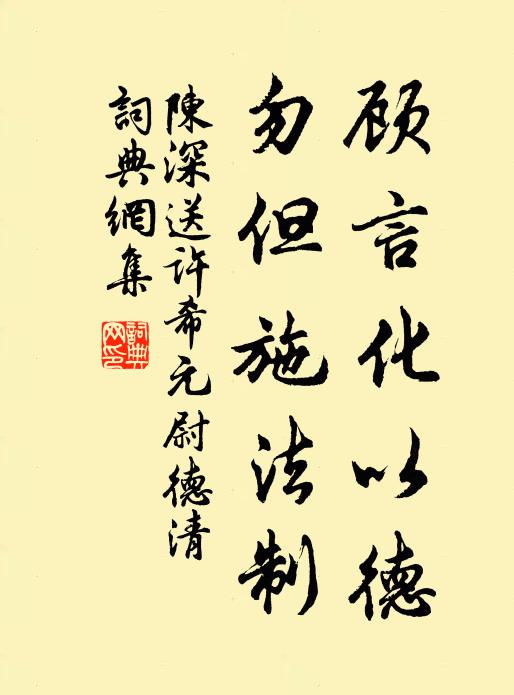 顾言化以德
勿但施法制
陳深送许希元尉德清
詞典網集
詞典网印